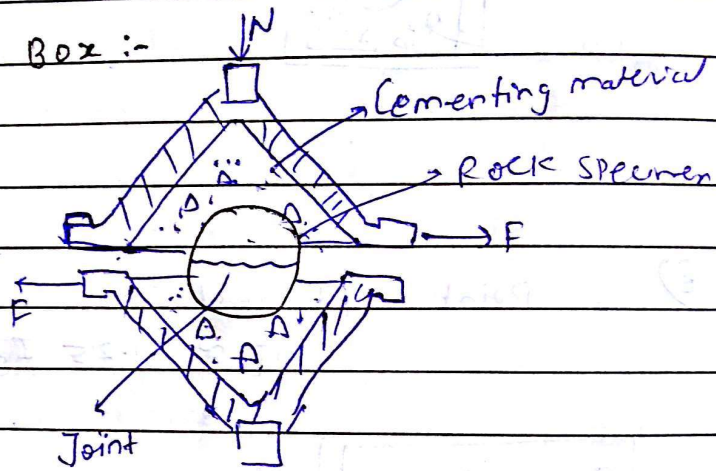 Box :-
N
Cementing material
Rock Specimen
F
F
Joint